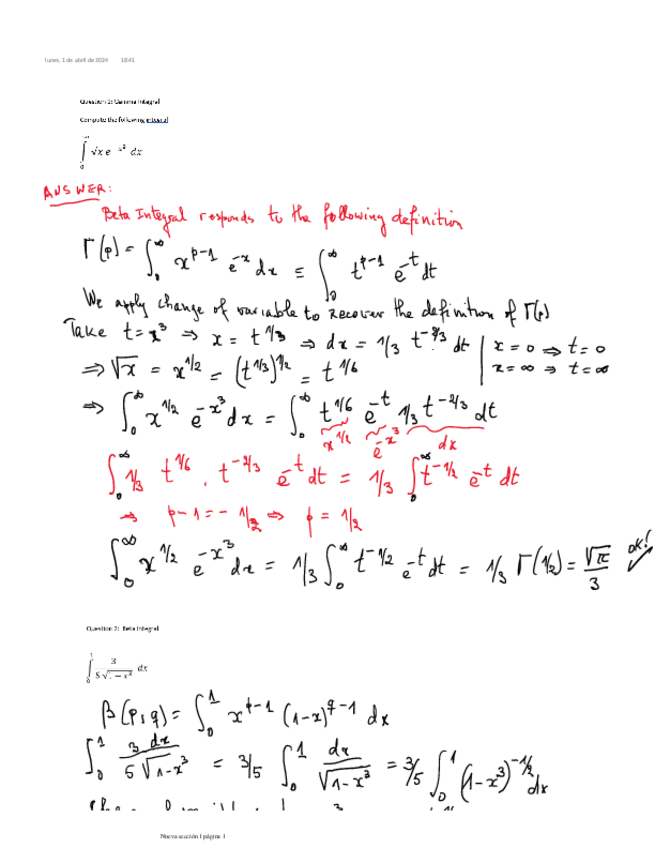 lunes, 1 de abril de 2024 18:41
Question 1: Gamma Integral
Compute the following integral
∫₀^∞ √x e^(-x³) dx
ANSWER:
Beta Integral responds to the following definition
Γ(p) = ∫₀^∞ x^(p-1) e^(-x) dx ≡ ∫₀^∞ t^(p-1) e^(-t) dt
We apply change of variable to recover the definition of Γ(p)
Take t = x³ ⇒ x = t^(1/3) ⇒ dx = 1/3 t^(-2/3) dt | x = 0 ⇒ t = 0
⇒ √x = x^(1/2) = (t^(1/3))^(1/2) = t^(1/6) | x = ∞ ⇒ t = ∞
⇒ ∫₀^∞ x^(1/2) e^(-x³) dx = ∫₀^∞ t^(1/6) e^(-t) 1/3 t^(-2/3) dt
x^(1/2) e^(-x³) dx
∫₀^∞ 1/3 t^(1/6) · t^(-2/3) e^(-t) dt = 1/3 ∫₀^∞ t^(-1/2) e^(-t) dt
⇒ p-1 = -1/2 ⇒ p = 1/2
∫₀^∞ x^(1/2) e^(-x³) dx = 1/3 ∫₀^∞ t^(-1/2) e^(-t) dt = 1/3 Γ(1/2) = √π/3 ok! ✓
Question 2: Beta Integral
∫₀^1 3/(5√(1-x³)) dx
β(p,q) = ∫₀^1 x^(p-1) (1-x)^(q-1) dx
∫₀^1 3 dx/(5√(1-x³)) = 3/5 ∫₀^1 dx/√(1-x³) = 3/5 ∫₀^1 (1-x³)^(-1/2) dx
Nueva sección 1 página 1